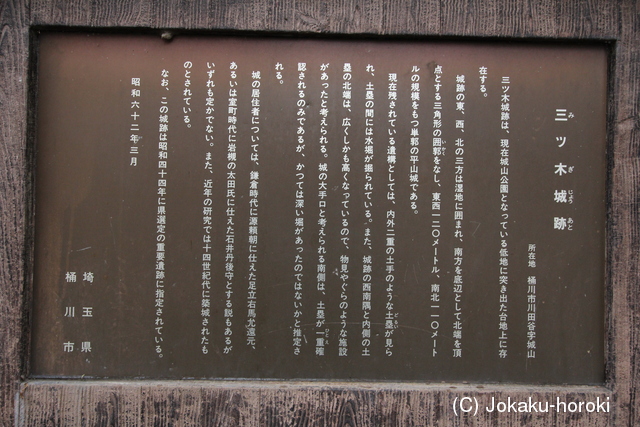 三ツ木城跡
み　つ　ぎ　じょう　あと
所在地　桶川市川田谷字城山
三ツ木城跡は、現在城山公園となっている低地に突き出た台地上に存
在する。
城跡の東、西、北の三方は湿地に囲まれ、南方を底辺として北端を頂
点とする三角形の囲郭をなし、東西一二〇メートル、南北一一〇メート
ルの規模をもつ単郭の平山城である。
現在残されている遺構としては、内外二重の土手のような土塁が見ら
れ、土塁の間には水堀が掘られている。また、城跡の西南隅と内側の土
塁の北端は、広くしかも高くなっているので、物見やぐらのような施設
があったと考えられる。城の大手口と考えられる南側は、土塁が一重確
認されるのみであるが、かつては深い堀があったのではないかと推定さ
れる。
城の居住者については、鎌倉時代に源頼朝に仕えた足立右馬允遠元、
あるいは室町時代に岩槻の太田氏に仕えた石井丹後守とする説もあるが
いずれも定かでない。また、近年の研究では十四世紀代に築城されたも
のとされている。
なお、この城跡は昭和四十四年に県選定の重要遺跡に指定されている。
昭和六十二年三月
埼玉県
桶川市
(C) Jokaku-horoki